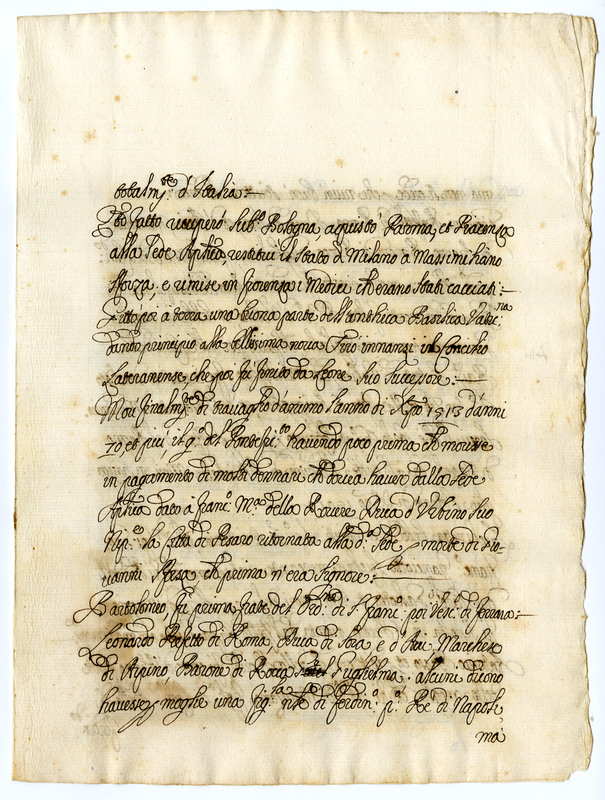 totalm.te d'Italia:—
Ciò fatto ricuperò sub.o Bologna, acquistò Parma, et Piacenza
alla Sede Ap.lica, restituì il stato di Milano a Massimiliano
Sforza, e rimise in Fiorenza i Medici ch'erano stati cacciati:—
Gittò poi à terra una buona parte dell'anthica Basilica Vatic.na
dando principio alla bellissima nova. Tirò innanzi il Concilio
Lateranense, che poi fù finito da Leone suo successore:—
Morì finalm.te di travaglio d'animo l'anno di Xpo 1513 d'anni
70, et più, il 9.o del Pontefic.to havendo poco prima che morisse
in pagamento di molti dennari che dovea haver dalla Sede
Ap.lica dato à Franc.o M.a della Rovere Duca d'Urbino suo
Nip.te la Città di Pesaro ritornata alla d.a Sede p morte di Gio-
vanni Sforza che prima n'era Signore:—
Bartolomeo, fù prima frate del Ord.ne di S. Franc.o poi Vesc.o di Ferrara:—
Leonardo Prefetto di Roma, Duca di Sora, e d'Arci, Marchese
di Arpino Barone di Rocca Guglielma. alcuni dicono
havesse p moglie una fig.la di Ferdin.o p.o Re di Napoli,
mà